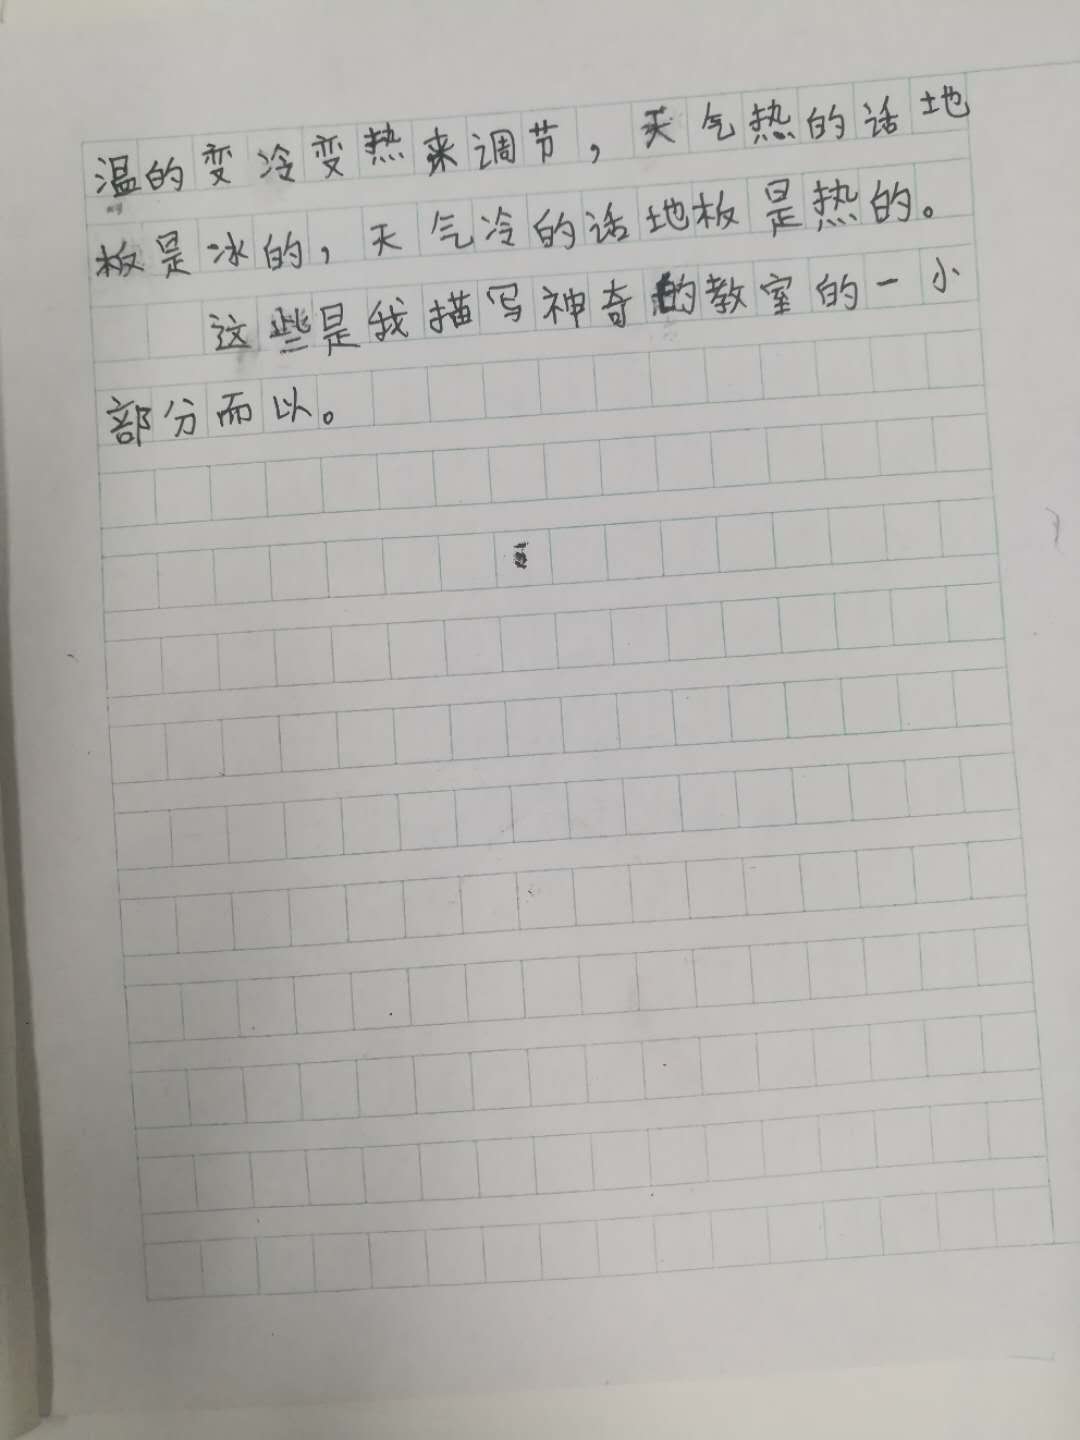 温的变冷变热来调节，天气热的话地
板是冰的，天气冷的话地板是热的。
这些是我描写神奇的教室的一小
部分而以。